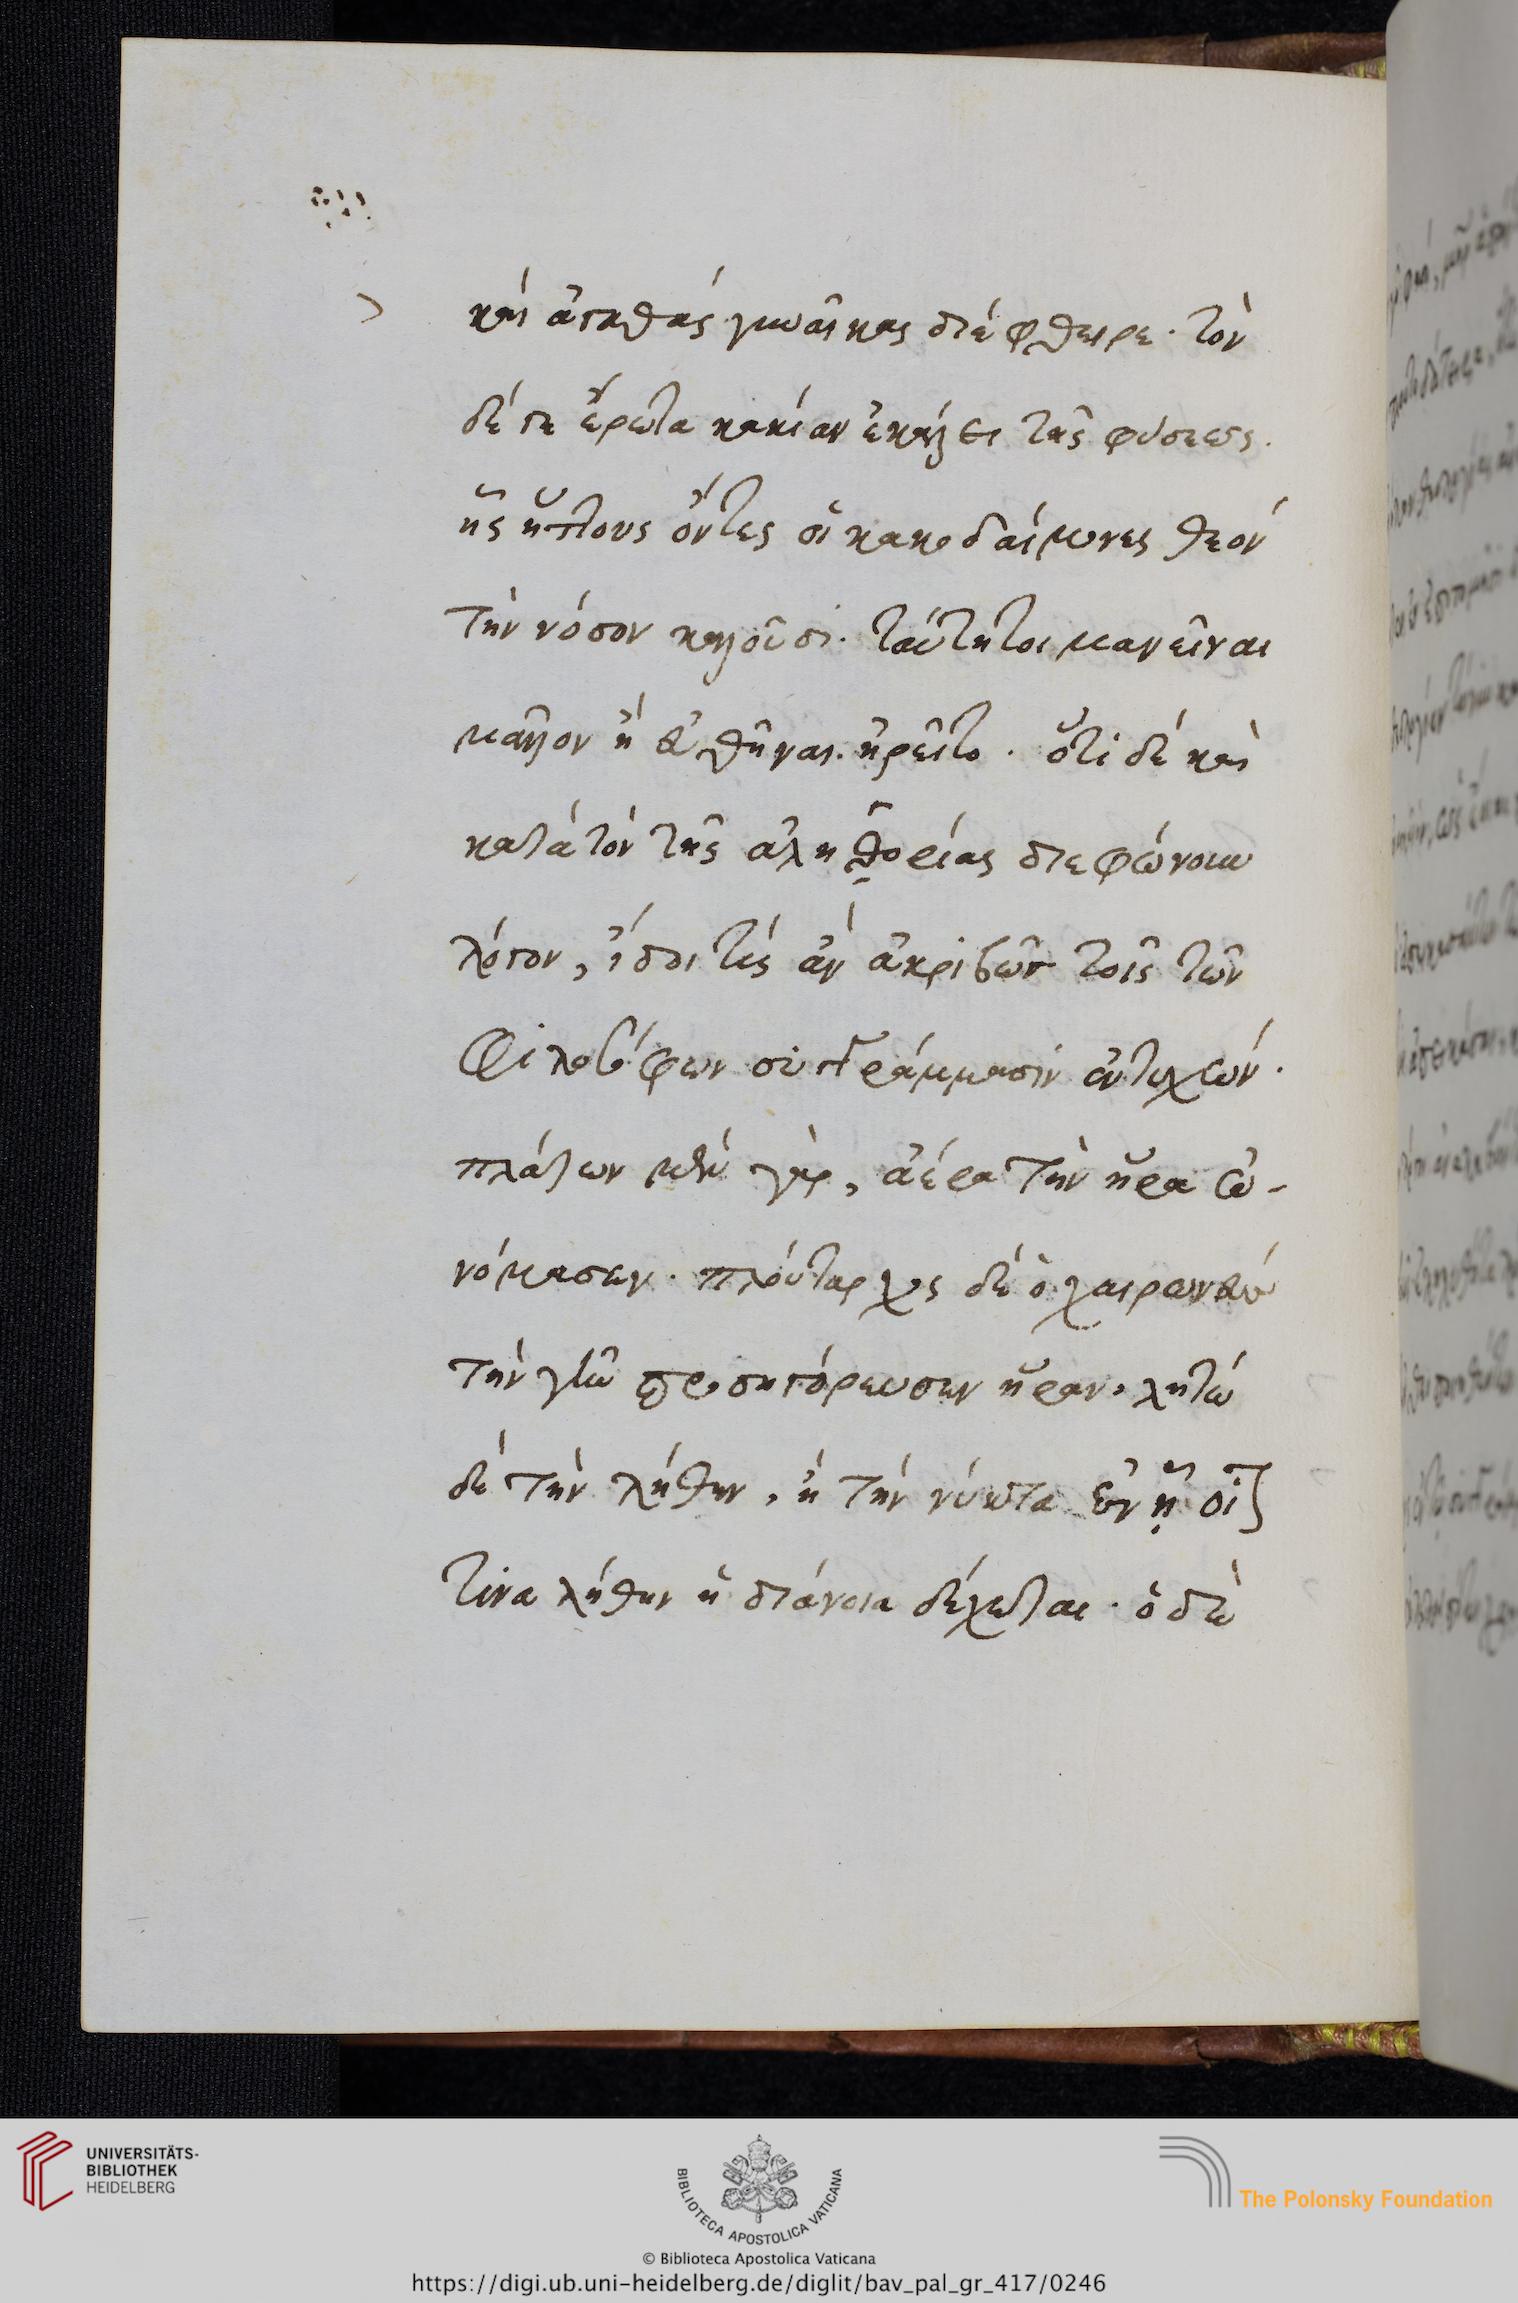 καὶ ἀγαθὰς γυναῖκας διέφθειρε. τὸν
δέ γε ἔρωτα κακίαν ἐκάλει τῆς φύσεως.
ἧς ἥττους ὄντες οἱ κακοδαίμονες θεὸν
τὴν νόσον καλοῦσι. ταύτῃτοι μανεῖναι
μᾶλλον ἢ ἡσθῆναι ᾑρεῖτο. ὅτι δὲ καὶ
κατὰ τὸν τῆς ἀληθορίας διεφώνουν
λόγον, ἴδοι τίς ἂν ἀκριβῶς τοῖς τῶν
Φιλοσόφων συγγράμμασιν ἐντυχών.
πλάτων μὲν γὰρ, ἀέρα τὴν ἥρα ὠ-
νόμασεν. πλούταρχος δὲ ὁ χαιρωνεὺς
τὴν γῆν προσηγόρευσεν ἥραν. λητὼ
δὲ τὴν λήθην, ἢ τὴν νύκτα ἐν ᾗ οἷόν
τινα λήθην ἡ διάνοια δέχεται. ὁ δὲ
UNIVERSITÄTS-
BIBLIOTHEK
HEIDELBERG
BIBLIOTECA APOSTOLICA VATICANA
The Polonsky Foundation
© Biblioteca Apostolica Vaticana
https://digi.ub.uni-heidelberg.de/diglit/bav_pal_gr_417/0246